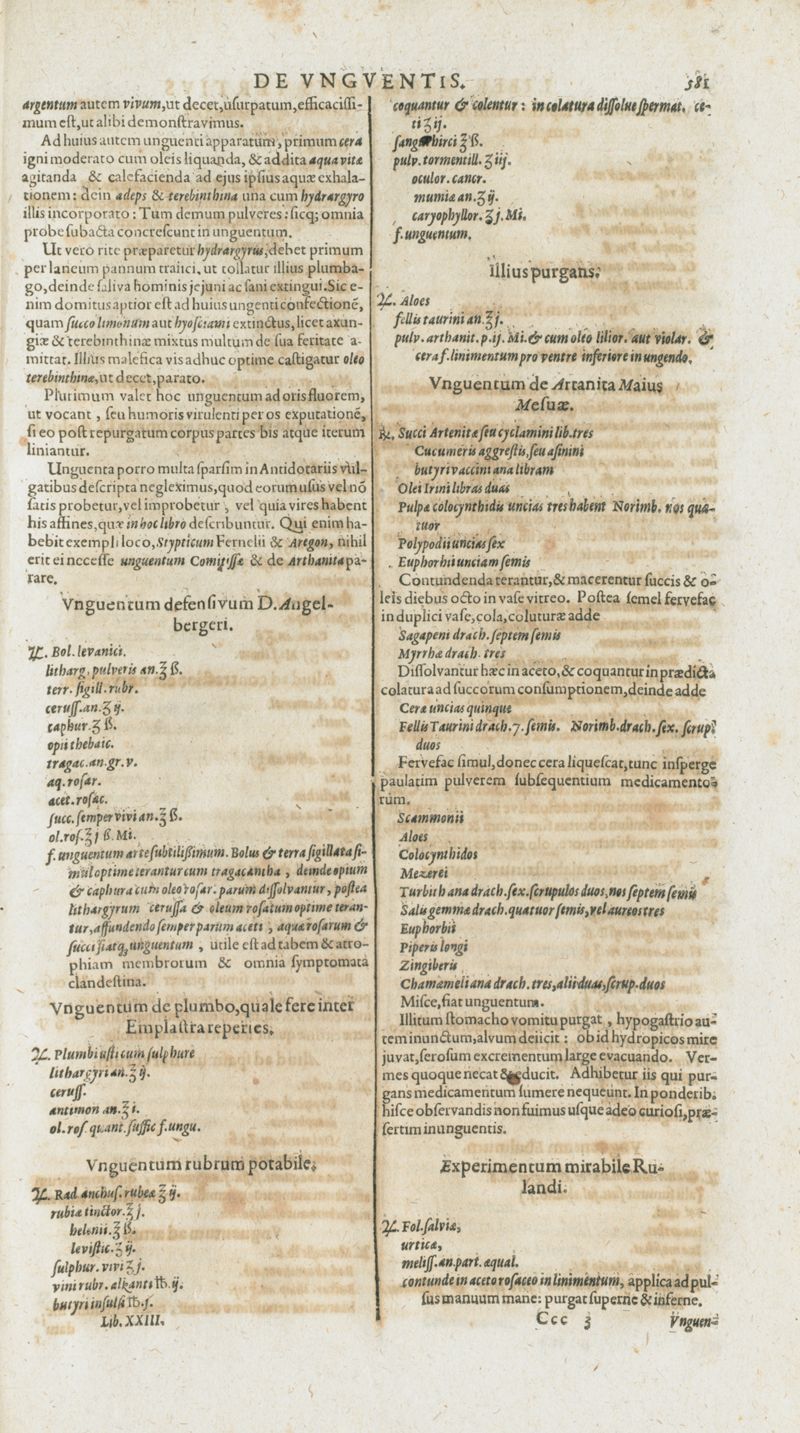 DE VNGVENTIS. 381
argentum autem vivum, ut decet, usurpatum, efficacissi-
mum est, ut alibi demonstravimus.
Ad huius autem unguenti apparatum, primum cera
igni moderato cum oleis liquanda, & addita aqua vitæ
agitanda & calefacienda ad ejus ipsius aquæ exhala-
tionem: dein adeps & terebinthina una cum hydrargyro
illis incorporato: Tum demum pulveres: sicq; omnia
probe subacta concrescunt in unguentum.
Ut vero rite præparetur hydrargyrus, debet primum
per laneum pannum traiici, ut tollatur illius plumba-
go, deinde saliva hominis jejuni ac sani extingui. Sic e-
nim domitus aptior est ad huius ungenti confectionē,
quam succo limonum aut hyosciami extinctus, licet axun-
giæ & terebinthinæ mixtus multum de sua feritate a-
mittat. Illius malefica vis adhuc optime castigatur oleo
terebinthinæ, ut decet, parato.
Plurimum valet hoc unguentum ad oris fluorem,
ut vocant, seu humoris virulenti per os exputationē,
si eo post repurgatum corpus partes bis atque iterum
liniantur.
Unguenta porro multa sparsim in Antidotariis vul-
gatibus descripta negleximus, quod eorum usus vel nō
satis probetur, vel improbetur, vel quia vires habent
his affines, quæ in hoc libro describuntur. Qui enim ha-
bebit exempli loco, Stypticum Fernelii & Aregon, nihil
erit ei necesse unguentum Comitissæ & de Arthanita pa-
rare.
Vnguentum defensivum D. Augel-
bergeri.
℞. Bol. levanici.
litharg. pulveris an. ℥ ß.
terr. sigill. rubr.
ceruss. an. ʒ ij.
caphur. ʒ ß.
opii thebaic.
tragac. an. gr. v.
aq. rosar.
acet. rosac.
succ. sempervivi an. ℥ ß.
ol. ros. ℥ j ß. Mi.
f. unguentum arte subtilissimum. Bolus & terra sigillata si-
mul optime terantur cum tragacantha, deinde opium
& caphura cum oleo rosar. parum dissolvantur, postea
lithargyrum cerussa & oleum rosatum optime teran-
tur, affundendo semper parum aceti, aquæ rosarum &
succi fiatq; unguentum, utile est ad tabem & atro-
phiam membrorum & omnia symptomata
clandestina.
Vnguentum de plumbo, quale fere inter
Emplastra reperies.
℞. Plumbi usti cum sulphure
lithargyri an. ʒ ij.
ceruss.
antimon an. ʒ i.
ol. ros. quant. suffic f. ungu.
Vnguentum rubrum potabile.
℞. Rad. anchus. rubeæ ʒ ij.
rubiæ tinctor. ʒ j.
helenii. ʒ ß.
levistic. ʒ ij.
sulphur. vivi ʒ j.
vini rubr. alkanti ℔. ij.
butyri insulsi ℔. j.
Lib. XXIII.
coquantur & colentur: in colatura dissolue spermat. ce-
ti ʒ ij.
sang. hirci ʒ ß.
pulv. tormentill. ʒ iij.
oculor. cancr.
mumiæ an. ʒ ij.
caryophyllor. ʒ j. Mi.
f. unguentum.
Illius purgans.
℞. Aloes
fellis taurini an. ʒ j.
pulv. arthanit. p. ij. Mi. & cum oleo lilior. aut violar. &
cera f. linimentum pro ventre inferiore inungendo.
Vnguentum de Artanita Maius
Mesuæ.
℞. Succi Artenitæ seu cyclamini lib. tres
Cucumeris aggrestis, seu asinini
butyri vaccini ana libram
Olei Irini libras duas
Pulpæ colocynthidis uncias tres habent Norimb. nos qua-
tuor
Polypodii uncias sex
Euphorbii unciam semis
Contundenda terantur, & macerentur succis & o-
leis diebus octo in vase vitreo. Postea semel fervefac
in duplici vase, cola, coluturæ adde
Sagapeni drach. septem semis
Myrrhæ drach. tres
Dissolvantur hæc in aceto, & coquantur in prædicta
colatura ad succorum consumptionem, deinde adde
Ceræ uncias quinque
Fellis Taurini drach. 7. semis. Norimb. drach. sex. scrup.
duos
Fervefac simul, donec cera liquescat, tunc insperge
paulatim pulverem subsequentium medicamento-
rum.
Scammonii
Aloes
Colocynthidos
Mezerei
Turbith ana drach. sex. scrupulos duos, nos septem semis
Salis gemmæ drach. quatuor semis, vel aureos tres
Euphorbii
Piperis longi
Zingiberis
Chamæmeli ana drach. tres, alii duas, scrup. duos
Misce, fiat unguentum.
Illitum stomacho vomitu purgat, hypogastrio au-
tem inunctum, alvum deiicit: ob id hydropicos mire
juvat, serosum excrementum large evacuando. Ver-
mes quoque necat & educit. Adhibetur iis qui pur-
gans medicamentum sumere nequeunt. In ponderib.
hisce observandis non fuimus usque adeo curiosi, præ-
sertim in unguentis.
Experimentum mirabile Ru-
landi.
℞. Fol. salviæ,
urticæ,
meliss. an. part. æqual.
contunde in aceto rosaceo in linimentum, applica ad pul-
sus manuum mane: purgat superne & inferne.
Ccc 3 Vnguen-